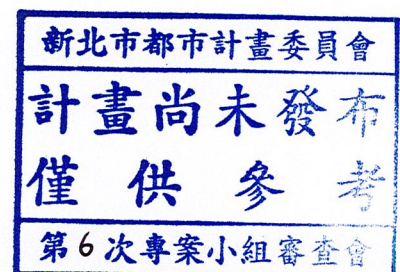 新北市都市計畫委員會
計畫尚未發布
僅供參考
第6次專案小組審查會